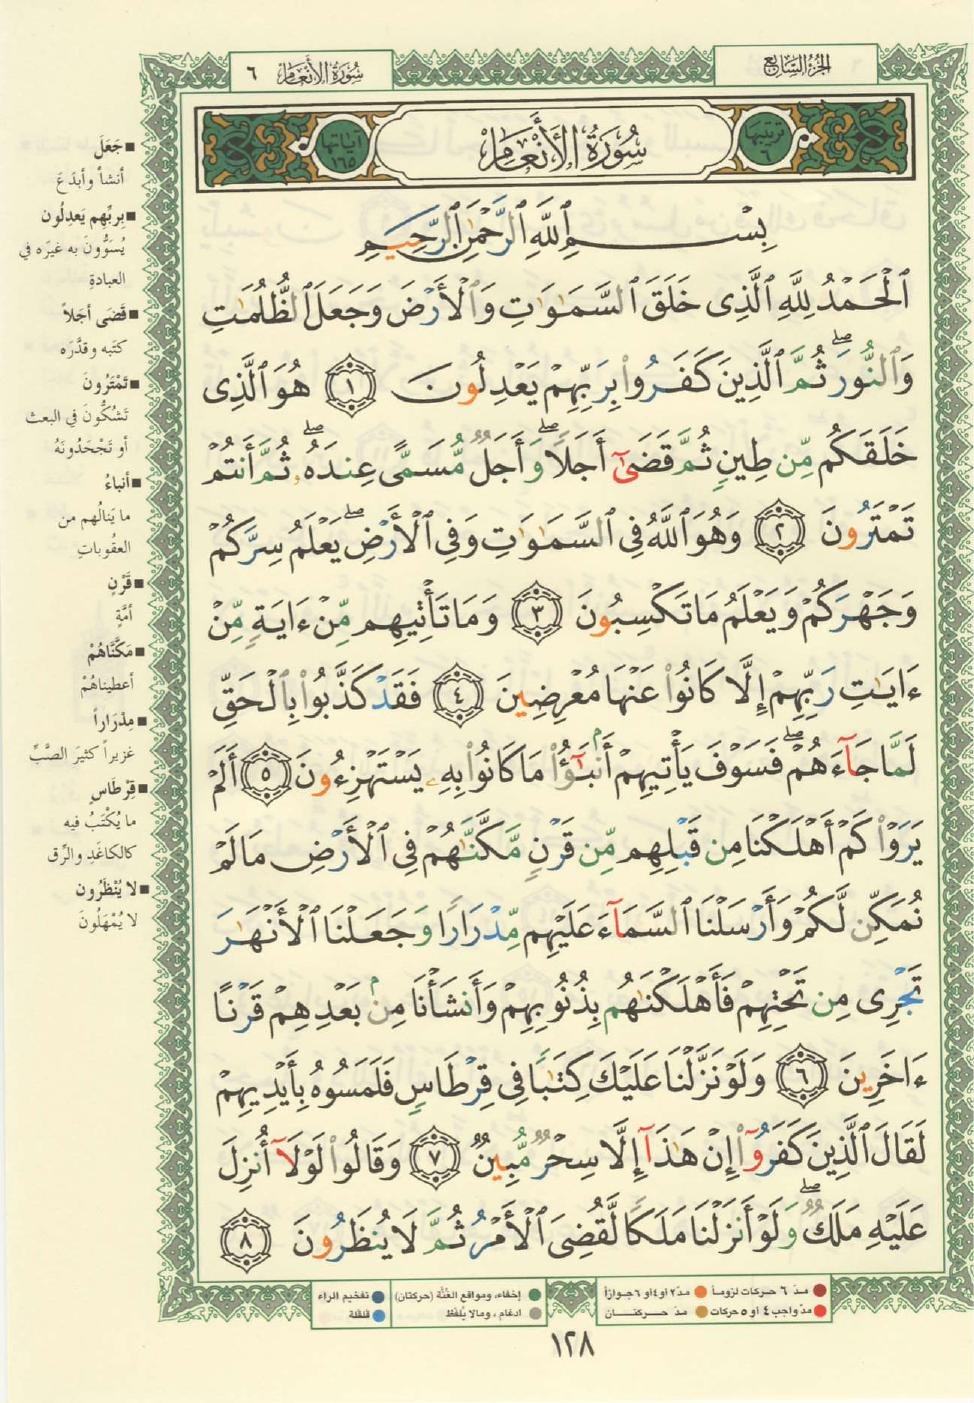 الجزء السابع
سورة الأنعام ٦
ترتيبها ٦
سُورَةُ الأَنْعَامِ
آياتها ١٦٥
بِسْمِ ٱللَّهِ ٱلرَّحْمَٰنِ ٱلرَّحِيمِ
ٱلْحَمْدُ لِلَّهِ ٱلَّذِى خَلَقَ ٱلسَّمَٰوَٰتِ وَٱلْأَرْضَ وَجَعَلَ ٱلظُّلُمَٰتِ
وَٱلنُّورَ ۖ ثُمَّ ٱلَّذِينَ كَفَرُوا۟ بِرَبِّهِمْ يَعْدِلُونَ ١ هُوَ ٱلَّذِى
خَلَقَكُم مِّن طِينٍ ثُمَّ قَضَىٰٓ أَجَلًا ۖ وَأَجَلٌ مُّسَمًّى عِندَهُۥ ۖ ثُمَّ أَنتُمْ
تَمْتَرُونَ ٢ وَهُوَ ٱللَّهُ فِى ٱلسَّمَٰوَٰتِ وَفِى ٱلْأَرْضِ ۖ يَعْلَمُ سِرَّكُمْ
وَجَهْرَكُمْ وَيَعْلَمُ مَا تَكْسِبُونَ ٣ وَمَا تَأْتِيهِم مِّنْ ءَايَةٍ مِّنْ
ءَايَٰتِ رَبِّهِمْ إِلَّا كَانُوا۟ عَنْهَا مُعْرِضِينَ ٤ فَقَدْ كَذَّبُوا۟ بِٱلْحَقِّ
لَمَّا جَآءَهُمْ ۖ فَسَوْفَ يَأْتِيهِمْ أَنۢبَٰٓؤُا۟ مَا كَانُوا۟ بِهِۦ يَسْتَهْزِءُونَ ٥ أَلَمْ
يَرَوْا۟ كَمْ أَهْلَكْنَا مِن قَبْلِهِم مِّن قَرْنٍ مَّكَّنَّٰهُمْ فِى ٱلْأَرْضِ مَا لَمْ
نُمَكِّن لَّكُمْ وَأَرْسَلْنَا ٱلسَّمَآءَ عَلَيْهِم مِّدْرَارًا وَجَعَلْنَا ٱلْأَنْهَٰرَ
تَجْرِى مِن تَحْتِهِمْ فَأَهْلَكْنَٰهُم بِذُنُوبِهِمْ وَأَنشَأْنَا مِنۢ بَعْدِهِمْ قَرْنًا
ءَاخَرِينَ ٦ وَلَوْ نَزَّلْنَا عَلَيْكَ كِتَٰبًا فِى قِرْطَاسٍ فَلَمَسُوهُ بِأَيْدِيهِمْ
لَقَالَ ٱلَّذِينَ كَفَرُوٓا۟ إِنْ هَٰذَآ إِلَّا سِحْرٌ مُّبِينٌ ٧ وَقَالُوا۟ لَوْلَآ أُنزِلَ
عَلَيْهِ مَلَكٌ ۖ وَلَوْ أَنزَلْنَا مَلَكًا لَّقُضِىَ ٱلْأَمْرُ ثُمَّ لَا يُنظَرُونَ ٨
■ جَعَلَ
أنشأ وأبدَعَ
■ بربِّهم يَعدِلُون
يُسَوُّونَ به غيرَه في
العبادةِ
■ قَضَى أجَلاً
كتَبه وقدَّرَه
■ تَمْتَرُونَ
تَشكُّونَ في البعث
أو تَجْحَدُونَهُ
■ أنباءُ
ما يَنالُهم من
العقُوباتِ
■ قَرْنٍ
أمَّةٍ
■ مَكَّنَّاهُمْ
أعطيناهُمْ
■ مِدْرَاراً
غزيراً كثيرَ الصَّبِّ
■ قِرْطَاسٍ
ما يُكْتَبُ فيه
كالكاغَدِ والرِّق
■ لا يُنْظَرُون
لا يُمْهَلُونَ
مدّ ٦ حركات لزوماً ● مدّ ٢ او ٤ او ٦ جوازاً
مدّ واجب ٤ او ٥ حركات ● مدّ حركتان
إخفاء، ومواقع الغُنَّة (حركتان)
ادغام، ومالا يُلفظ
تفخيم الراء
قلقلة
١٢٨